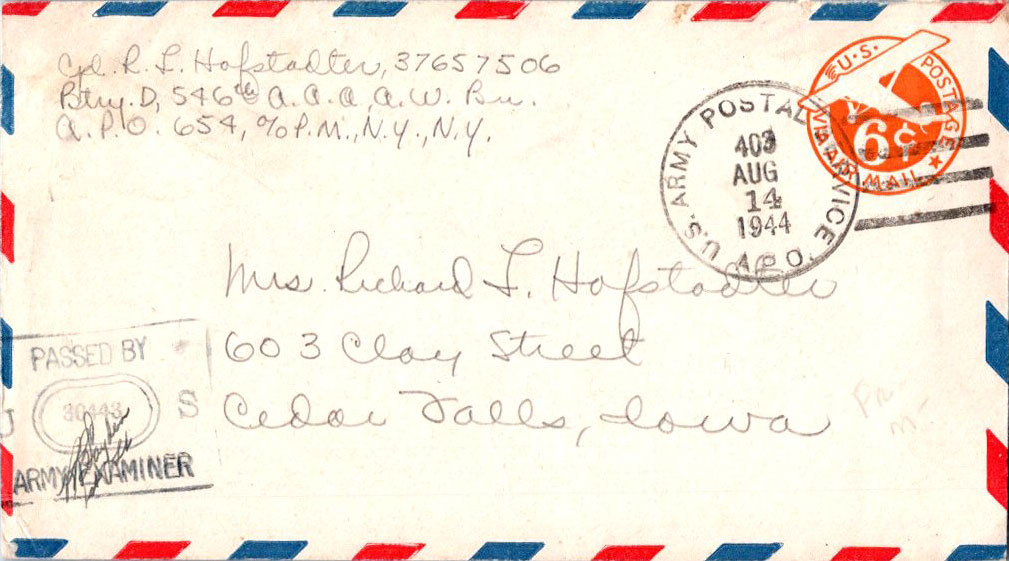 Cpl. R. L. Hofstadter, 37657506
Btry. D, 546th A.A.A. A.W. Bn.
A.P.O. 654, c/o P.M., N.Y., N.Y.
U.S. ARMY POSTAL SERVICE
403
AUG
14
1944
A.P.O.
U.S. POSTAGE
6¢
VIA AIR MAIL
Mrs. Richard L. Hofstadter
603 Clay Street
Cedar Falls, Iowa
PASSED BY
U 30443 S
ARMY EXAMINER